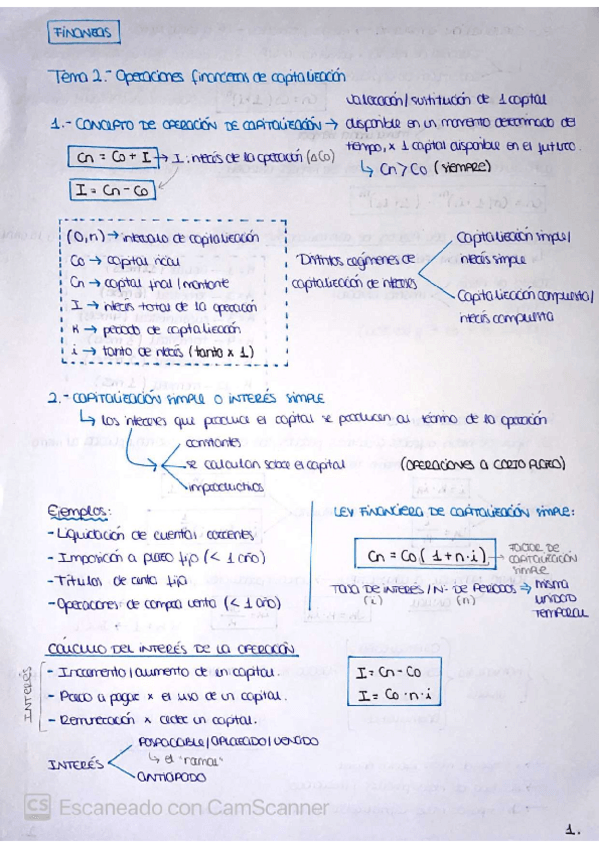 FINANZAS
Tema 2.- Operaciones financieras de capitalización
1.- CONCEPTO DE OPERACIÓN DE CAPITALIZACIÓN → valoración/sustitución de 1 capital
disponible en un momento determinado del
tiempo, x 1 capital disponible en el futuro.
↳ Cn > Co (siempre)
Cn = Co + I → I: interés de la operación (Δ Co)
I = Cn - Co
(0,n) → intervalo de capitalización
Co → capital inicial
Cn → capital final/montante
I → interés total de la operación
K → periodo de capitalización
i → tanto de interés (tanto x 1)
Distintos regímenes de
capitalización de intereses
Capitalización simple/
interés simple
Capitalización compuesta/
interés compuesta
2.- CAPITALIZACIÓN SIMPLE O INTERÉS SIMPLE
↳ los intereses que produce el capital se producen al término de la operación
constantes
se calculan sobre el capital (OPERACIONES A CORTO PLAZO)
improductivos
Ejemplos:
- Liquidación de cuentas corrientes
- Imposición a plazo fijo (< 1 año)
- Títulos de renta fija
- Operaciones de compra venta (< 1 año)
LEY FINANCIERA DE CAPITALIZACIÓN SIMPLE:
Cn = Co (1 + n · i) → FACTOR DE
CAPITALIZACIÓN
SIMPLE
TASA DE INTERÉS / Nº DE PERIODOS → misma
(i) (n) UNIDAD
TEMPORAL
CÁLCULO DEL INTERÉS DE LA OPERACIÓN
INTERÉS
- Incremento/aumento de un capital.
- Precio a pagar x el uso de un capital.
- Remuneración x ceder un capital.
I = Cn - Co
I = Co · n · i
INTERÉS
POSPAGABLE/APLAZADO/VENCIDO
↳ el "normal"
ANTICIPADO
CS Escaneado con CamScanner
1.